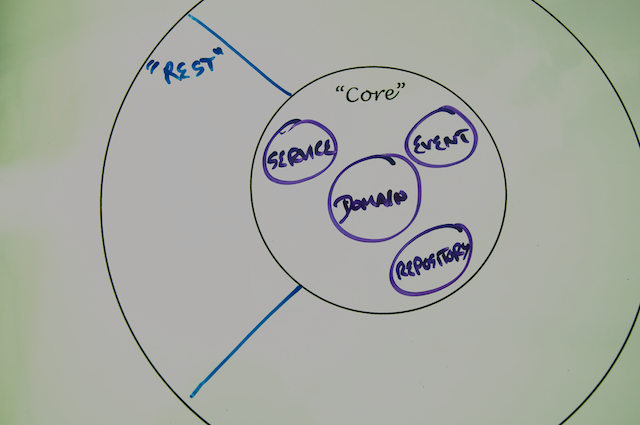 "REST"
"Core"
SERVICE
EVENT
DOMAIN
REPOSITORY